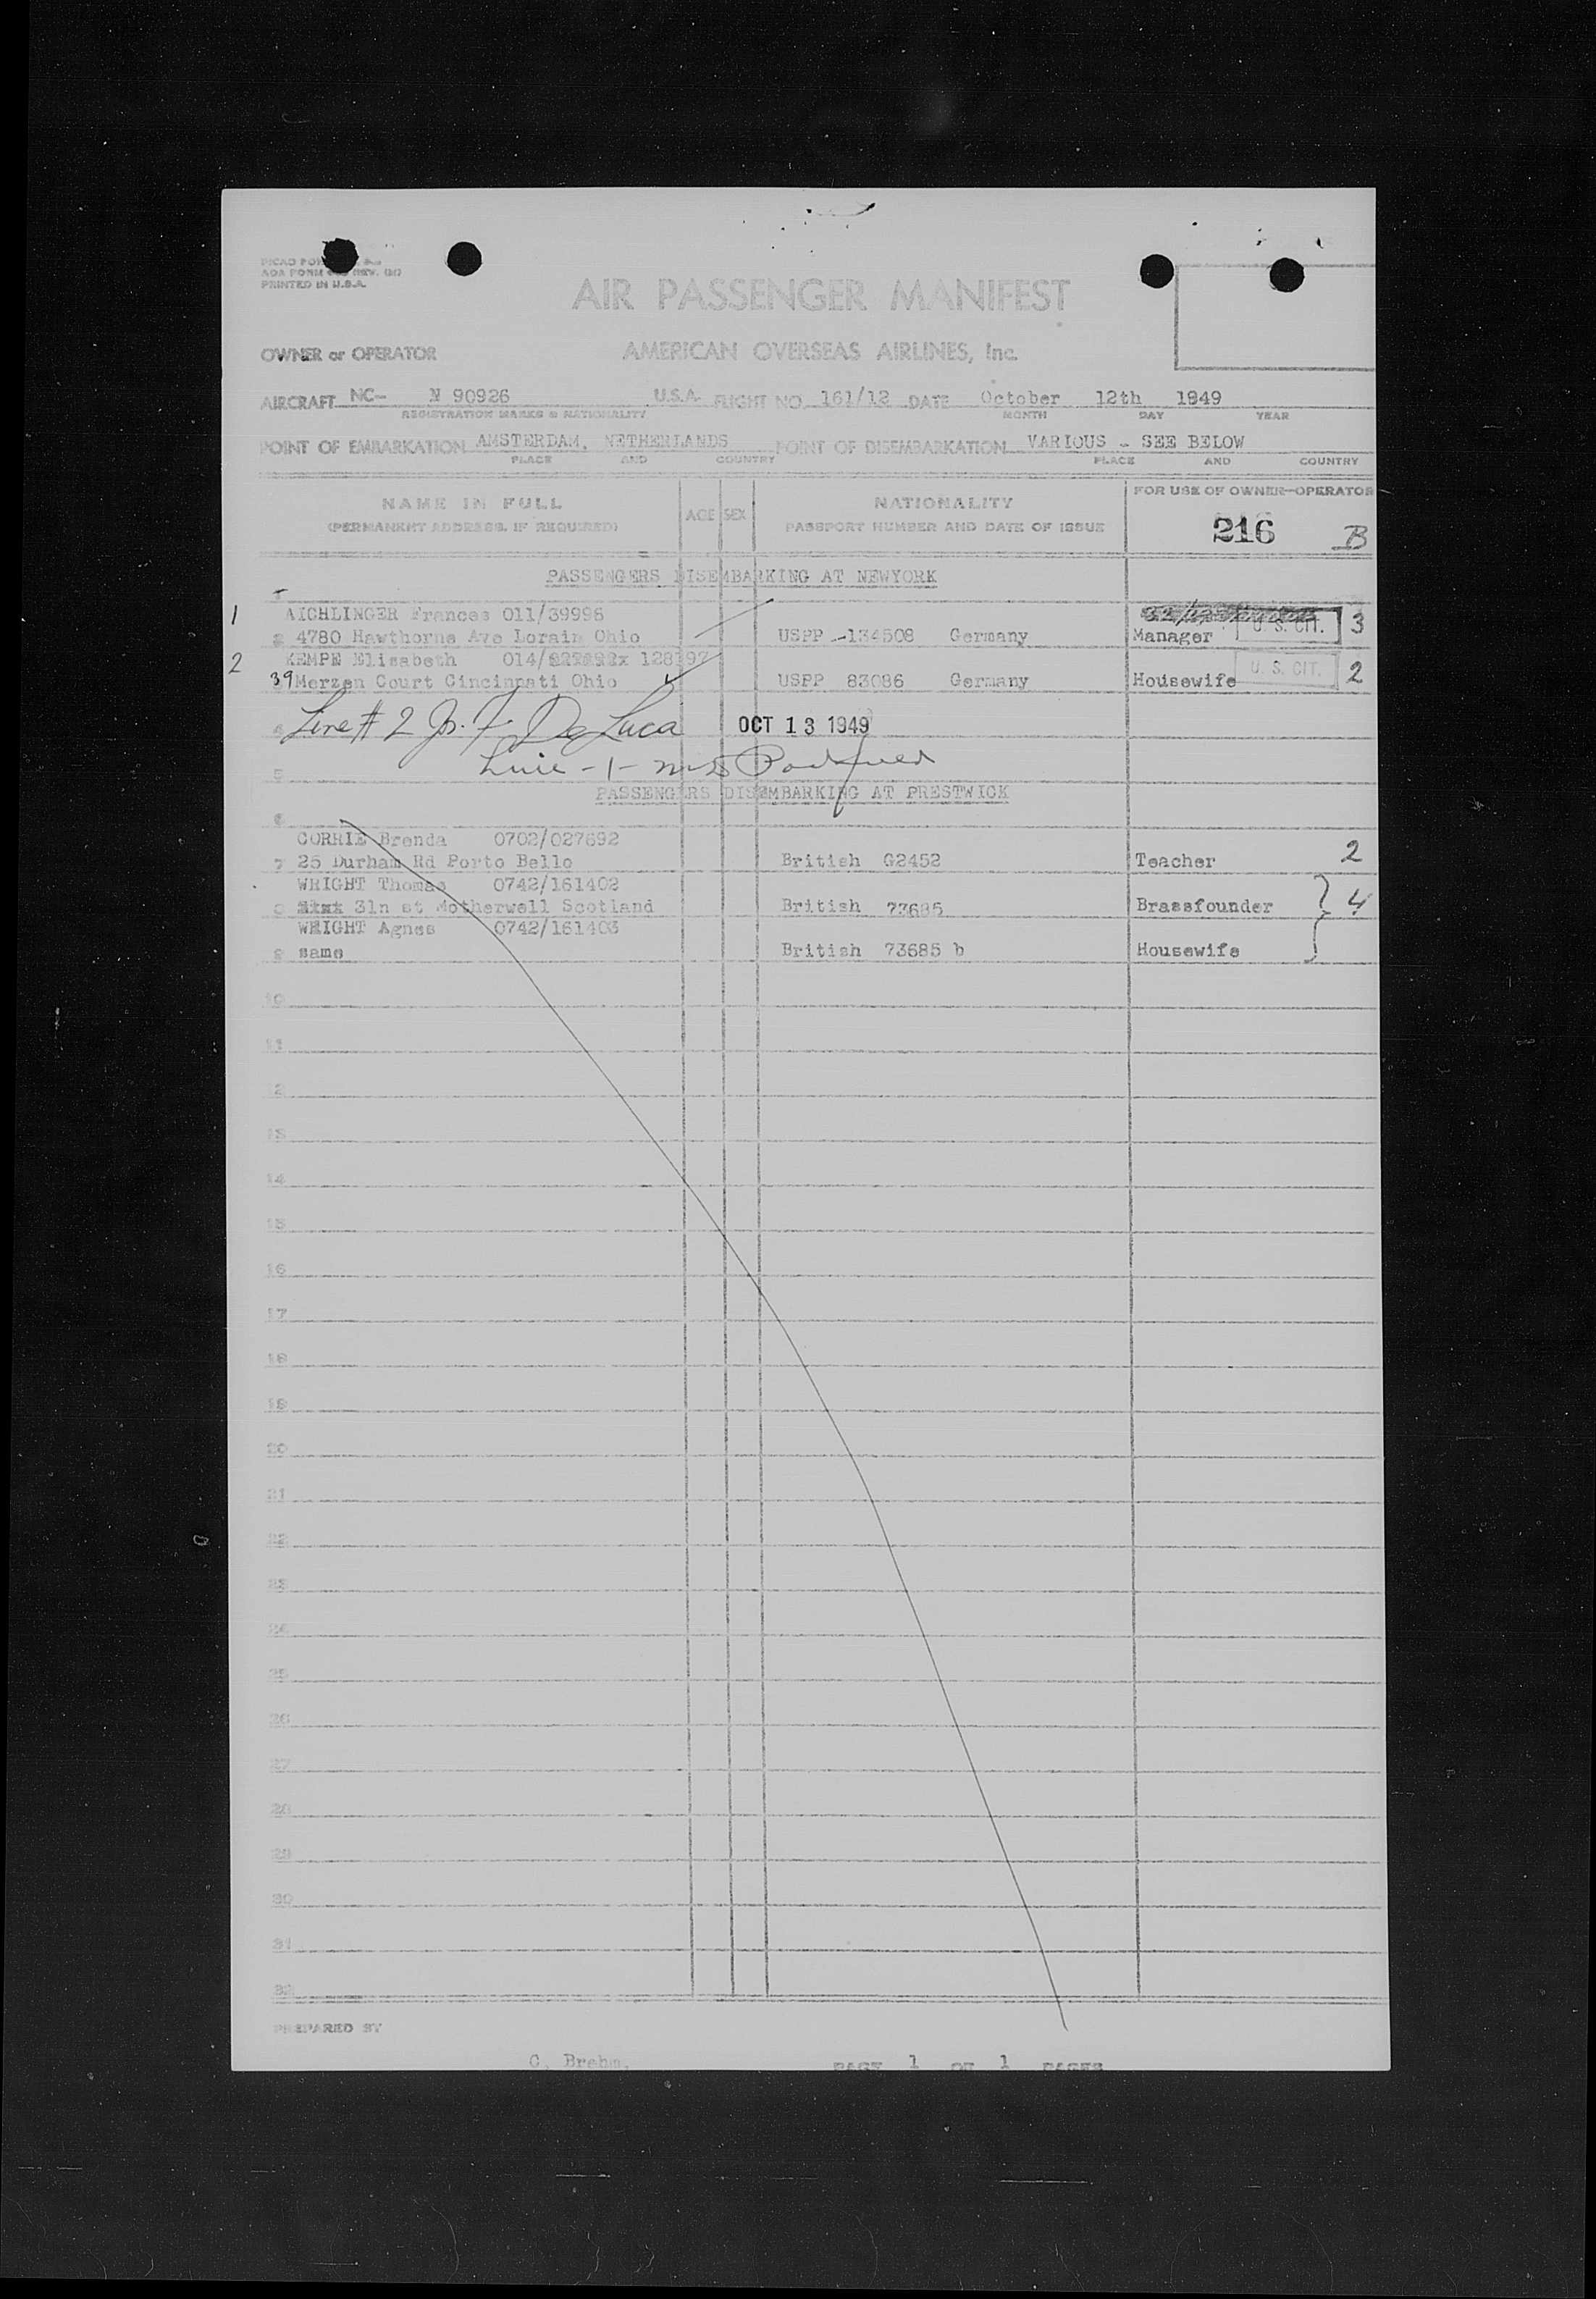 PRINTED IN U.S.A.
AIR PASSENGER MANIFEST
OWNER or OPERATOR AMERICAN OVERSEAS AIRLINES, Inc.
AIRCRAFT NC- N 90926 U.S.A. FLIGHT NO. 161/12 DATE October 12th 1949
REGISTRATION MARKS & NATIONALITY MONTH DAY YEAR
POINT OF EMBARKATION AMSTERDAM, NETHERLANDS POINT OF DISEMBARKATION VARIOUS - SEE BELOW
PLACE AND COUNTRY PLACE AND COUNTRY
NAME IN FULL AGE SEX NATIONALITY FOR USE OF OWNER-OPERATOR
(PERMANENT ADDRESS, IF REQUIRED) PASSPORT NUMBER AND DATE OF ISSUE 216 B
PASSENGERS DISEMBARKING AT NEWYORK
1
1 AICHLINGER Frances 011/39996
2 4780 Hawthorne Ave Lorain Ohio USPP -134508 Germany Manager U. S. CIT. 3
2 KEMPE Elisabeth 014/ 128197
39 Merzen Court Cincinnati Ohio USPP 83086 Germany Housewife U. S. CIT. 2
4 Line # 2 Jr. F. De Luca OCT 13 1949
5 Line -1-
PASSENGERS DISEMBARKING AT PRESTWICK
6
CORRIE Brenda 0702/027692
7 25 Durham Rd Porto Bello British G2452 Teacher 2
WRIGHT Thomas 0742/161402
8 31n st Motherwell Scotland British 73685 Brassfounder 4
WRIGHT Agnes 0742/161403
9 same British 73685 b Housewife
10
11
12
13
14
15
16
17
18
19
20
21
22
23
24
25
26
27
28
29
30
31
32
PREPARED BY
G. Brehm. PAGE 1 OF 1 PAGES